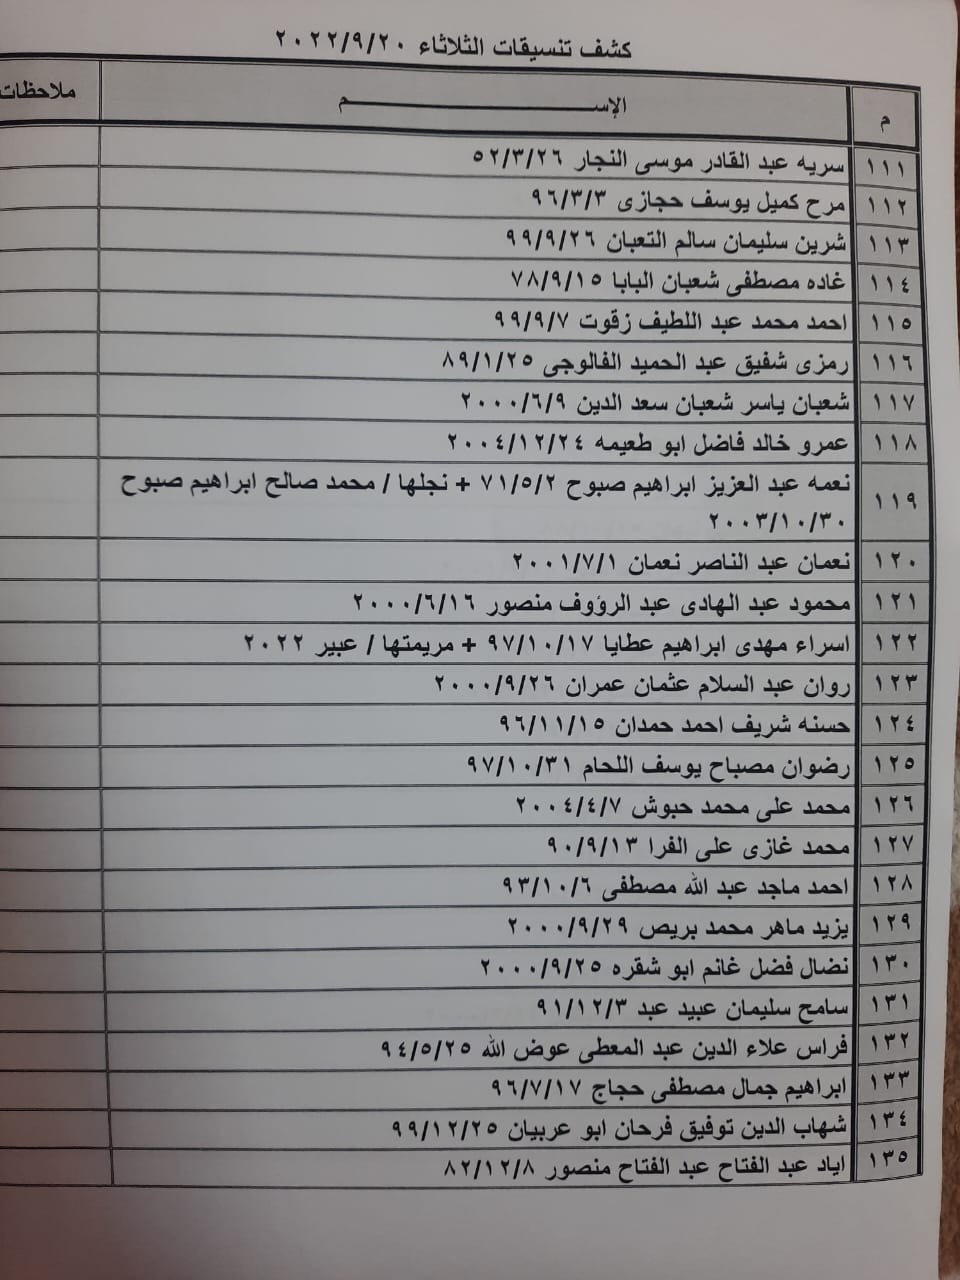 كشف تنسيقات الثلاثاء ٢٠٢٢/٩/٢٠
م الإســـــم ملاحظات
١١١ سريه عبد القادر موسى النجار ٥٢/٣/٢٦
١١٢ مرح كميل يوسف حجازى ٩٦/٣/٣
١١٣ شرين سليمان سالم التعبان ٩٩/٩/٢٦
١١٤ غاده مصطفى شعبان البابا ٧٨/٩/١٥
١١٥ احمد محمد عبد اللطيف زقوت ٩٩/٩/٧
١١٦ رمزى شفيق عبد الحميد الفالوجى ٨٩/١/٢٥
١١٧ شعبان ياسر شعبان سعد الدين ٢٠٠٠/٦/٩
١١٨ عمرو خالد فاضل ابو طعيمه ٢٠٠٤/١٢/٢٤
١١٩ نعمه عبد العزيز ابراهيم صبوح ٧١/٥/٢ + نجلها / محمد صالح ابراهيم صبوح
٢٠٠٣/١٠/٣٠
١٢٠ نعمان عبد الناصر نعمان ٢٠٠١/٧/١
١٢١ محمود عبد الهادى عبد الرؤوف منصور ٢٠٠٠/٦/١٦
١٢٢ اسراء مهدى ابراهيم عطايا ٩٧/١٠/١٧ + مريمتها / عبير ٢٠٢٢
١٢٣ روان عبد السلام عثمان عمران ٢٠٠٠/٩/٢٦
١٢٤ حسنه شريف احمد حمدان ٩٦/١١/١٥
١٢٥ رضوان مصباح يوسف اللحام ٩٧/١٠/٣١
١٢٦ محمد على محمد حبوش ٢٠٠٤/٤/٧
١٢٧ محمد غازى على الفرا ٩٠/٩/١٣
١٢٨ احمد ماجد عبد الله مصطفى ٩٣/١٠/٦
١٢٩ يزيد ماهر محمد بريص ٢٠٠٠/٩/٢٩
١٣٠ نضال فضل غانم ابو شقره ٢٠٠٠/٩/٢٥
١٣١ سامح سليمان عبيد عبد ٩١/١٢/٣
١٣٢ فراس علاء الدين عبد المعطى عوض الله ٩٤/٥/٢٥
١٣٣ ابراهيم جمال مصطفى حجاج ٩٦/٧/١٧
١٣٤ شهاب الدين توفيق فرحان ابو عربيان ٩٩/١٢/٢٥
١٣٥ اياد عبد الفتاح عبد الفتاح منصور ٨٢/١٢/٨